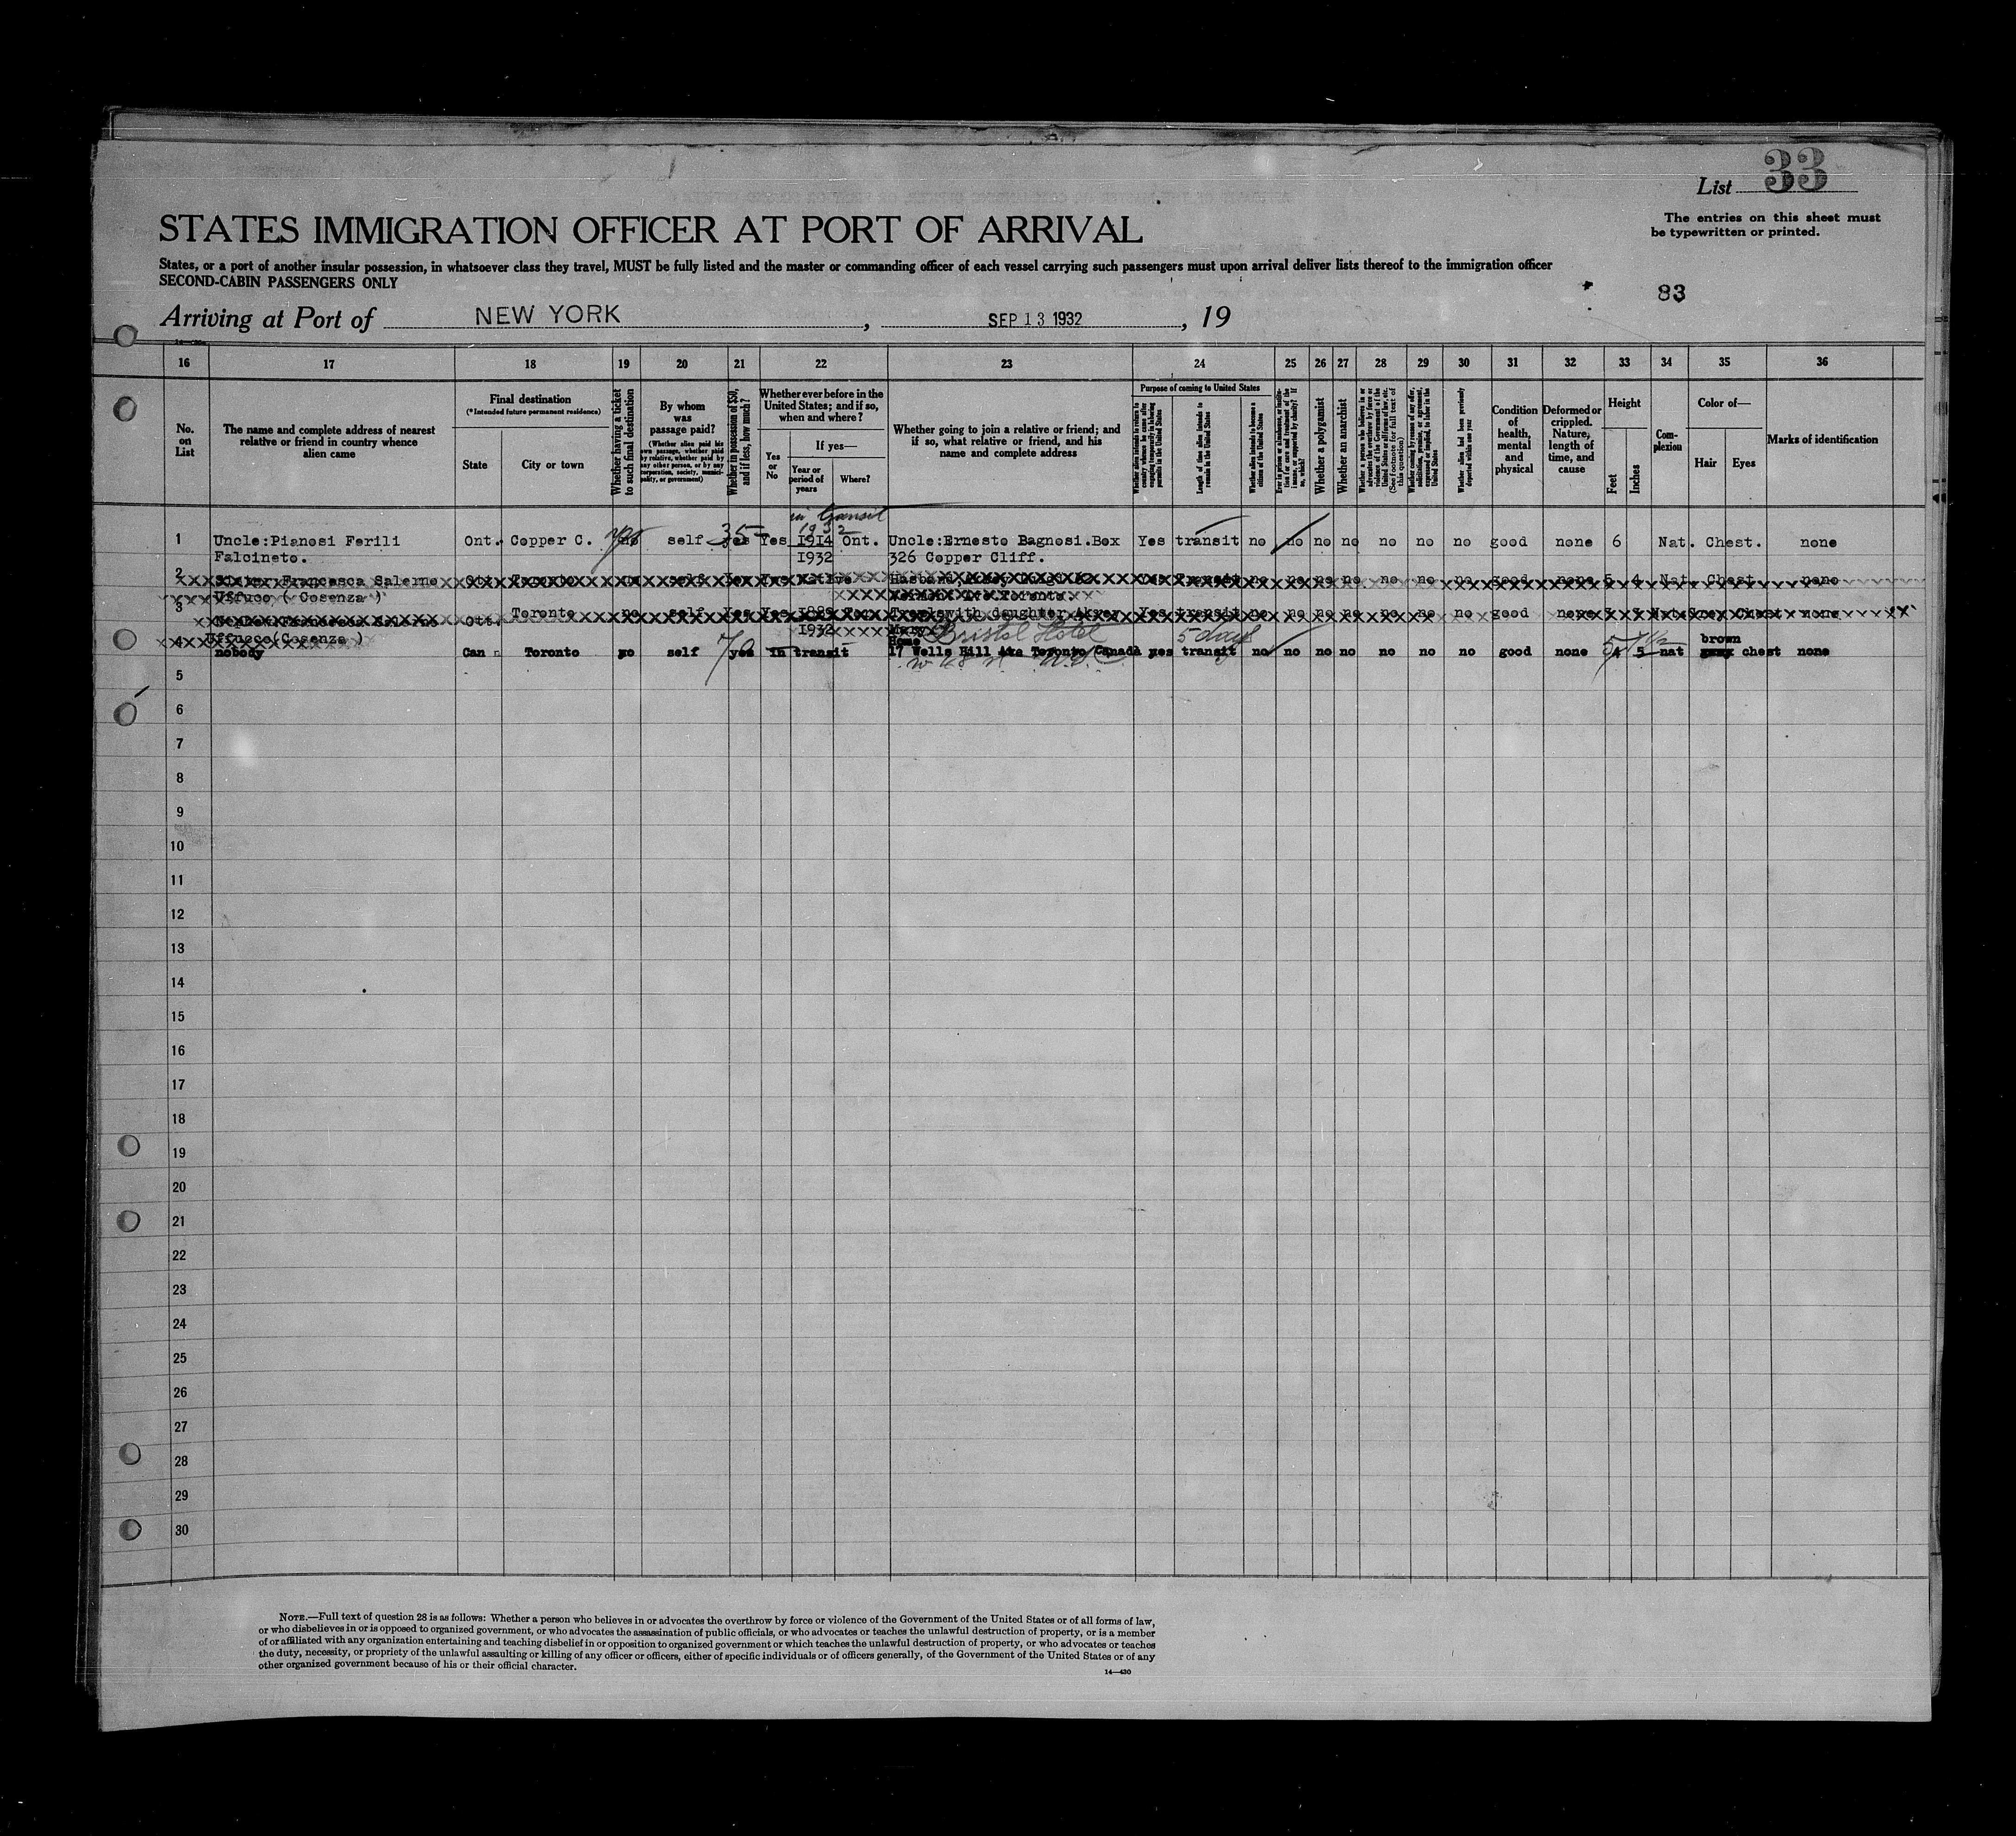 List 33
The entries on this sheet must
be typewritten or printed.
STATES IMMIGRATION OFFICER AT PORT OF ARRIVAL
States, or a port of another insular possession, in whatsoever class they travel, MUST be fully listed and the master or commanding officer of each vessel carrying such passengers must upon arrival deliver lists thereof to the immigration officer
SECOND-CABIN PASSENGERS ONLY
83
Arriving at Port of NEW YORK, SEP 13 1932, 19
16 17 18 19 20 21 22 23 24 25 26 27 28 29 30 31 32 33 34 35 36
No.
on
List
The name and complete address of nearest
relative or friend in country whence
alien came
Final destination
(*Intended future permanent residence)
State
City or town
Whether having a ticket
to such final destination
By whom
was
passage paid?
(Whether alien paid his
own passage, whether paid
by relative, whether paid by
any other person, or by any
corporation, society, munici-
pality, or government)
Whether in possession of $50,
and if less, how much?
Whether ever before in the
United States; and if so,
when and where?
Yes
or
No
If yes—
Year or
period of
years
Where?
Whether going to join a relative or friend; and
if so, what relative or friend, and his
name and complete address
Purpose of coming to United States
Length of time alien intends to
remain in the United States
Whether alien intends to become a
citizen of the United States
Whether a polygamist
Whether an anarchist
(See footnote for full text of
this question)
Whether alien had been previously
deported within one year
Condition
of
health,
mental
and
physical
Deformed or
crippled.
Nature,
length of
time, and
cause
Height
Feet
Inches
Com-
plexion
Color of—
Hair
Eyes
Marks of identification
in transit
1932
1 Uncle:Pianosi Ferili Ont. Copper C. no self 35 yes Yes 1914 Ont. Uncle:Ernesto Bagnosi.Box Yes transit no no no no no no no good none 6 Nat. Chest. none
Falcineto. 1932 326 Copper Cliff.
2 Sister Francesca Salerno Ott. Toronto no self Yes Yes Native Husband Yes Transit no no no no no no no good none 5 4 Nat. Chest none
Uffuco ( Cosenza )
3 Salerno Ott. Toronto no self Yes Yes 1889 with daughter Yes transit no no no no no no no good none Nat Grey Chest none
Uffucco(Cosenza ) 1932 Mary
Home Bristol Hotel 5 days brown
4 nobody Can Toronto no self 70 yes in transit 17 Wells Hill Ave Toronto Canada yes transit no no no no no no no good none 5 nat chest none
5
6
7
8
9
10
11
12
13
14
15
16
17
18
19
20
21
22
23
24
25
26
27
28
29
30
NOTE.—Full text of question 28 is as follows: Whether a person who believes in or advocates the overthrow by force or violence of the Government of the United States or of all forms of law,
or who disbelieves in or is opposed to organized government, or who advocates the assassination of public officials, or who advocates or teaches the unlawful destruction of property, or is a member
of or affiliated with any organization entertaining and teaching disbelief in or opposition to organized government or which teaches the unlawful destruction of property, or who advocates or teaches
the duty, necessity, or propriety of the unlawful assaulting or killing of any officer or officers, either of specific individuals or of officers generally, of the Government of the United States or of any
other organized government because of his or their official character.
14—430